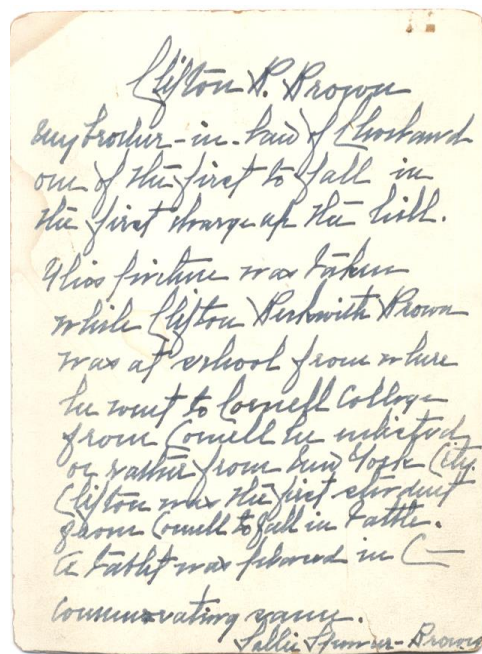 Clifton B. Brown
my brother-in-law of Cleveland
one of the first to fall in
the first charge up the hill.
This picture was taken
while Clifton Beckwith Brown
was at school from where
he went to Cornell College
from Cornell he enlisted,
or rather from New York City.
Clifton was the first student
from Cornell to fall in battle.
A tablet was placed in C—
commemorating same.
Sallie Brown